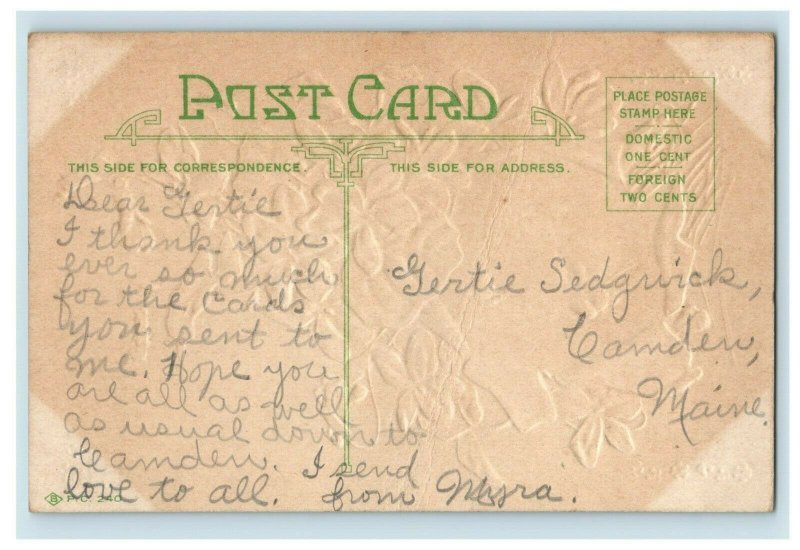 POST CARD
PLACE POSTAGE
STAMP HERE
DOMESTIC
ONE CENT
FOREIGN
TWO CENTS
THIS SIDE FOR CORRESPONDENCE.
THIS SIDE FOR ADDRESS.
Dear Gertie
I thank you
ever so much
for the cards
you sent to
me. Hope you
are all as well
as usual down to
Camden. I send
love to all. from Myra.
Gertie Sedgwick,
Camden,
Maine.
B P.C. 240